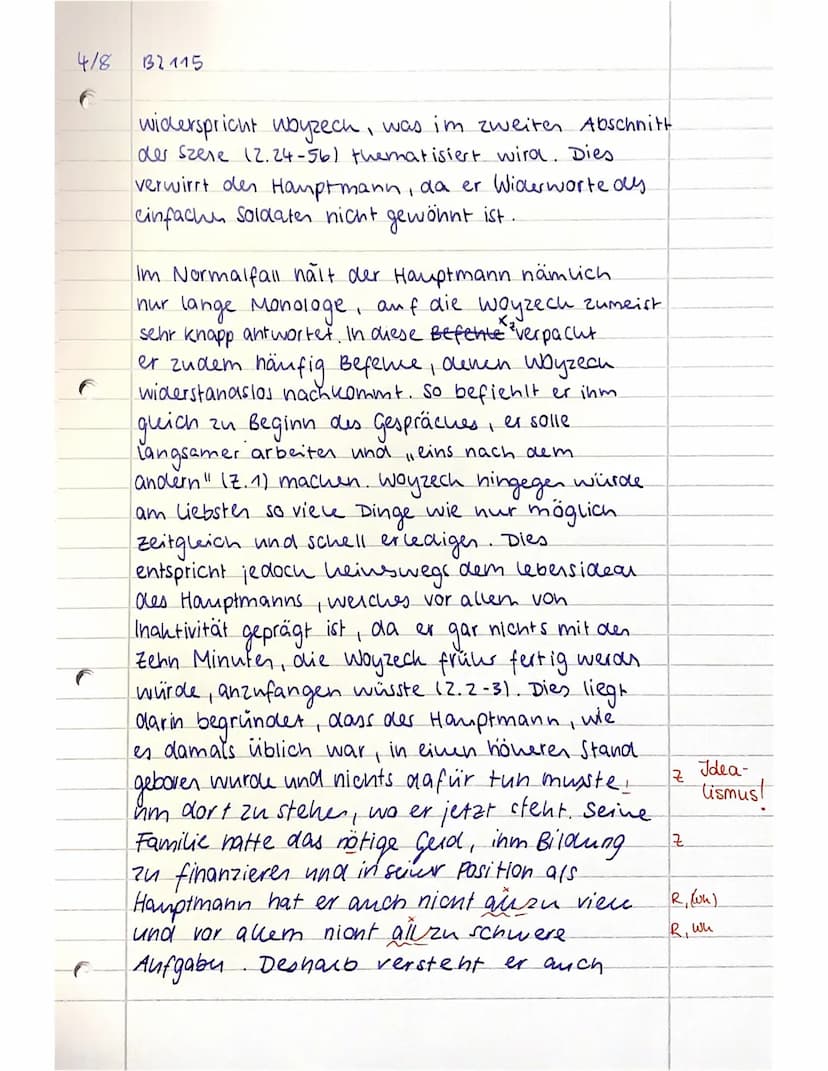 4/8 BZ 115
widerspricht Woyzeck, was im zweiten Abschnitt
der Szene (Z.24-56) thematisiert wird. Dies
verwirrt den Hauptmann, da er Widerworte des
einfachen Soldaten nicht gewöhnt ist.
Im Normalfall hält der Hauptmann nämlich
nur lange Monologe, auf die Woyzeck zumeist
sehr knapp antwortet. In diese Befehle x² verpackt
er zudem häufig Befehle, denen Woyzeck
widerstandslos nachkommt. So befiehlt er ihm
gleich zu Beginn des Gespräches, er solle
langsamer arbeiten und „eins nach dem
andern" (Z.1) machen. Woyzeck hingegen würde
am liebsten so viele Dinge wie nur möglich
zeitgleich und schell erledigen. Dies
entspricht jedoch keinswegs dem Lebensideal
des Hauptmanns, welches vor allem von
Inaktivität geprägt ist, da er gar nichts mit den
zehn Minuten, die Woyzeck früher fertig werden
würde, anzufangen wüsste (Z.2-3). Dies liegt
darin begründet, dass der Hauptmann, wie
es damals üblich war, in einen höheren Stand
geboren wurde und nichts dafür tun musste, Z Idea-
um dort zu stehen, wo er jetzt steht. Seine lismus!
Familie hatte das nötige Geld, ihm Bildung Z
zu finanzieren und in seiner Position als
Hauptmann hat er auch nicht allzu viele R, (Wh)
und vor allem nicht allzu schwere R, Wh
Aufgaben. Deshalb versteht er auch